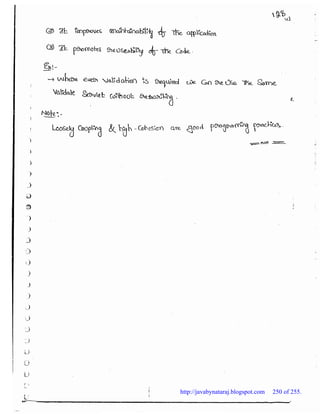 128
② It improves maintainability of the application
③ It promotes reuseability of the code.
Ex:-
→ where ever validation is required we can reuse the same
Validate Servlet without rewriting.
Note:-
Loosely Coupling & high-Cohesion are good programming practices.
http://javabynataraj.blogspot.com 250 of 255.